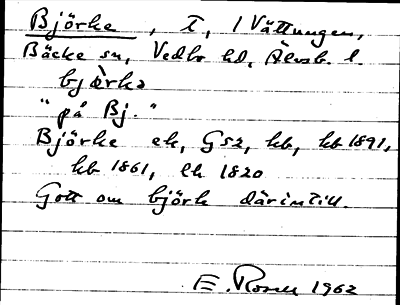 Björke, T, l Vättungen,
Bäcke sn, Vedbo hd, Älvsb. l.
bjö̀rkə
"på Bj."
Björke ek, GSz, kb, kb 1891,
kb 1861, lh 1820
Gott om björk därintill.
E. Rosell 1962